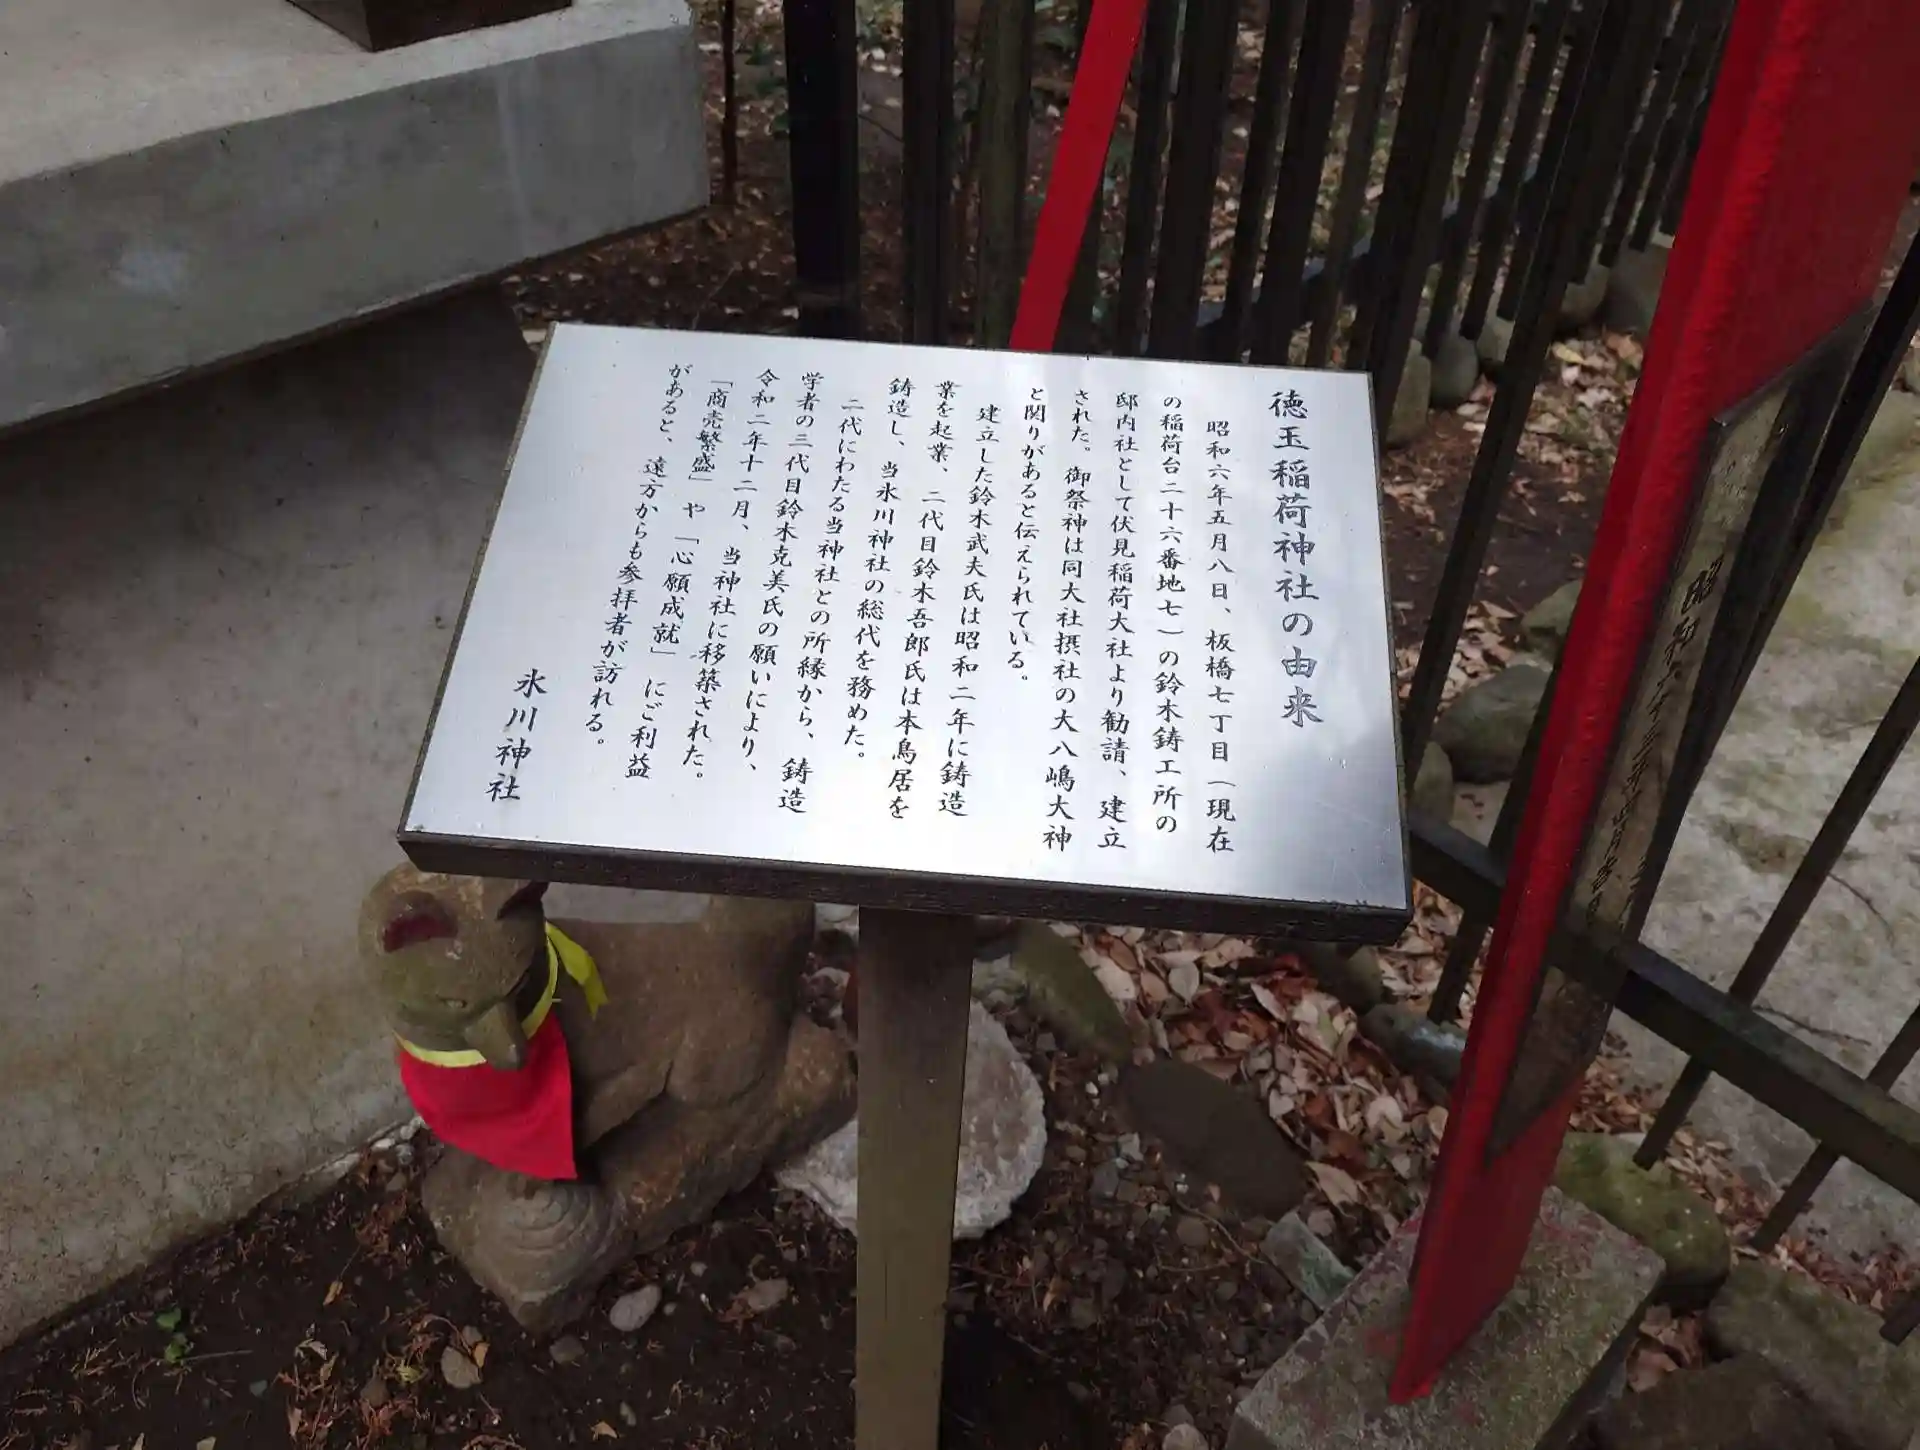 徳玉稲荷神社の由来
昭和六年五月八日、板橋七丁目（現在
の稲荷台二十六番地七）の鈴木鋳工所の
邸内社として伏見稲荷大社より勧請、建立
された。御祭神は同大社摂社の大八嶋大神
と関りがあると伝えられている。
建立した鈴木武夫氏は昭和二年に鋳造
業を起業、二代目鈴木吾郎氏は本鳥居を
鋳造し、当氷川神社の総代を務めた。
二代にわたる当神社との所縁から、鋳造
学者の三代目鈴木克美氏の願いにより、
令和二年十二月、当神社に移築された。
「商売繁盛」や「心願成就」にご利益
があると、遠方からも参拝者が訪れる。
氷川神社